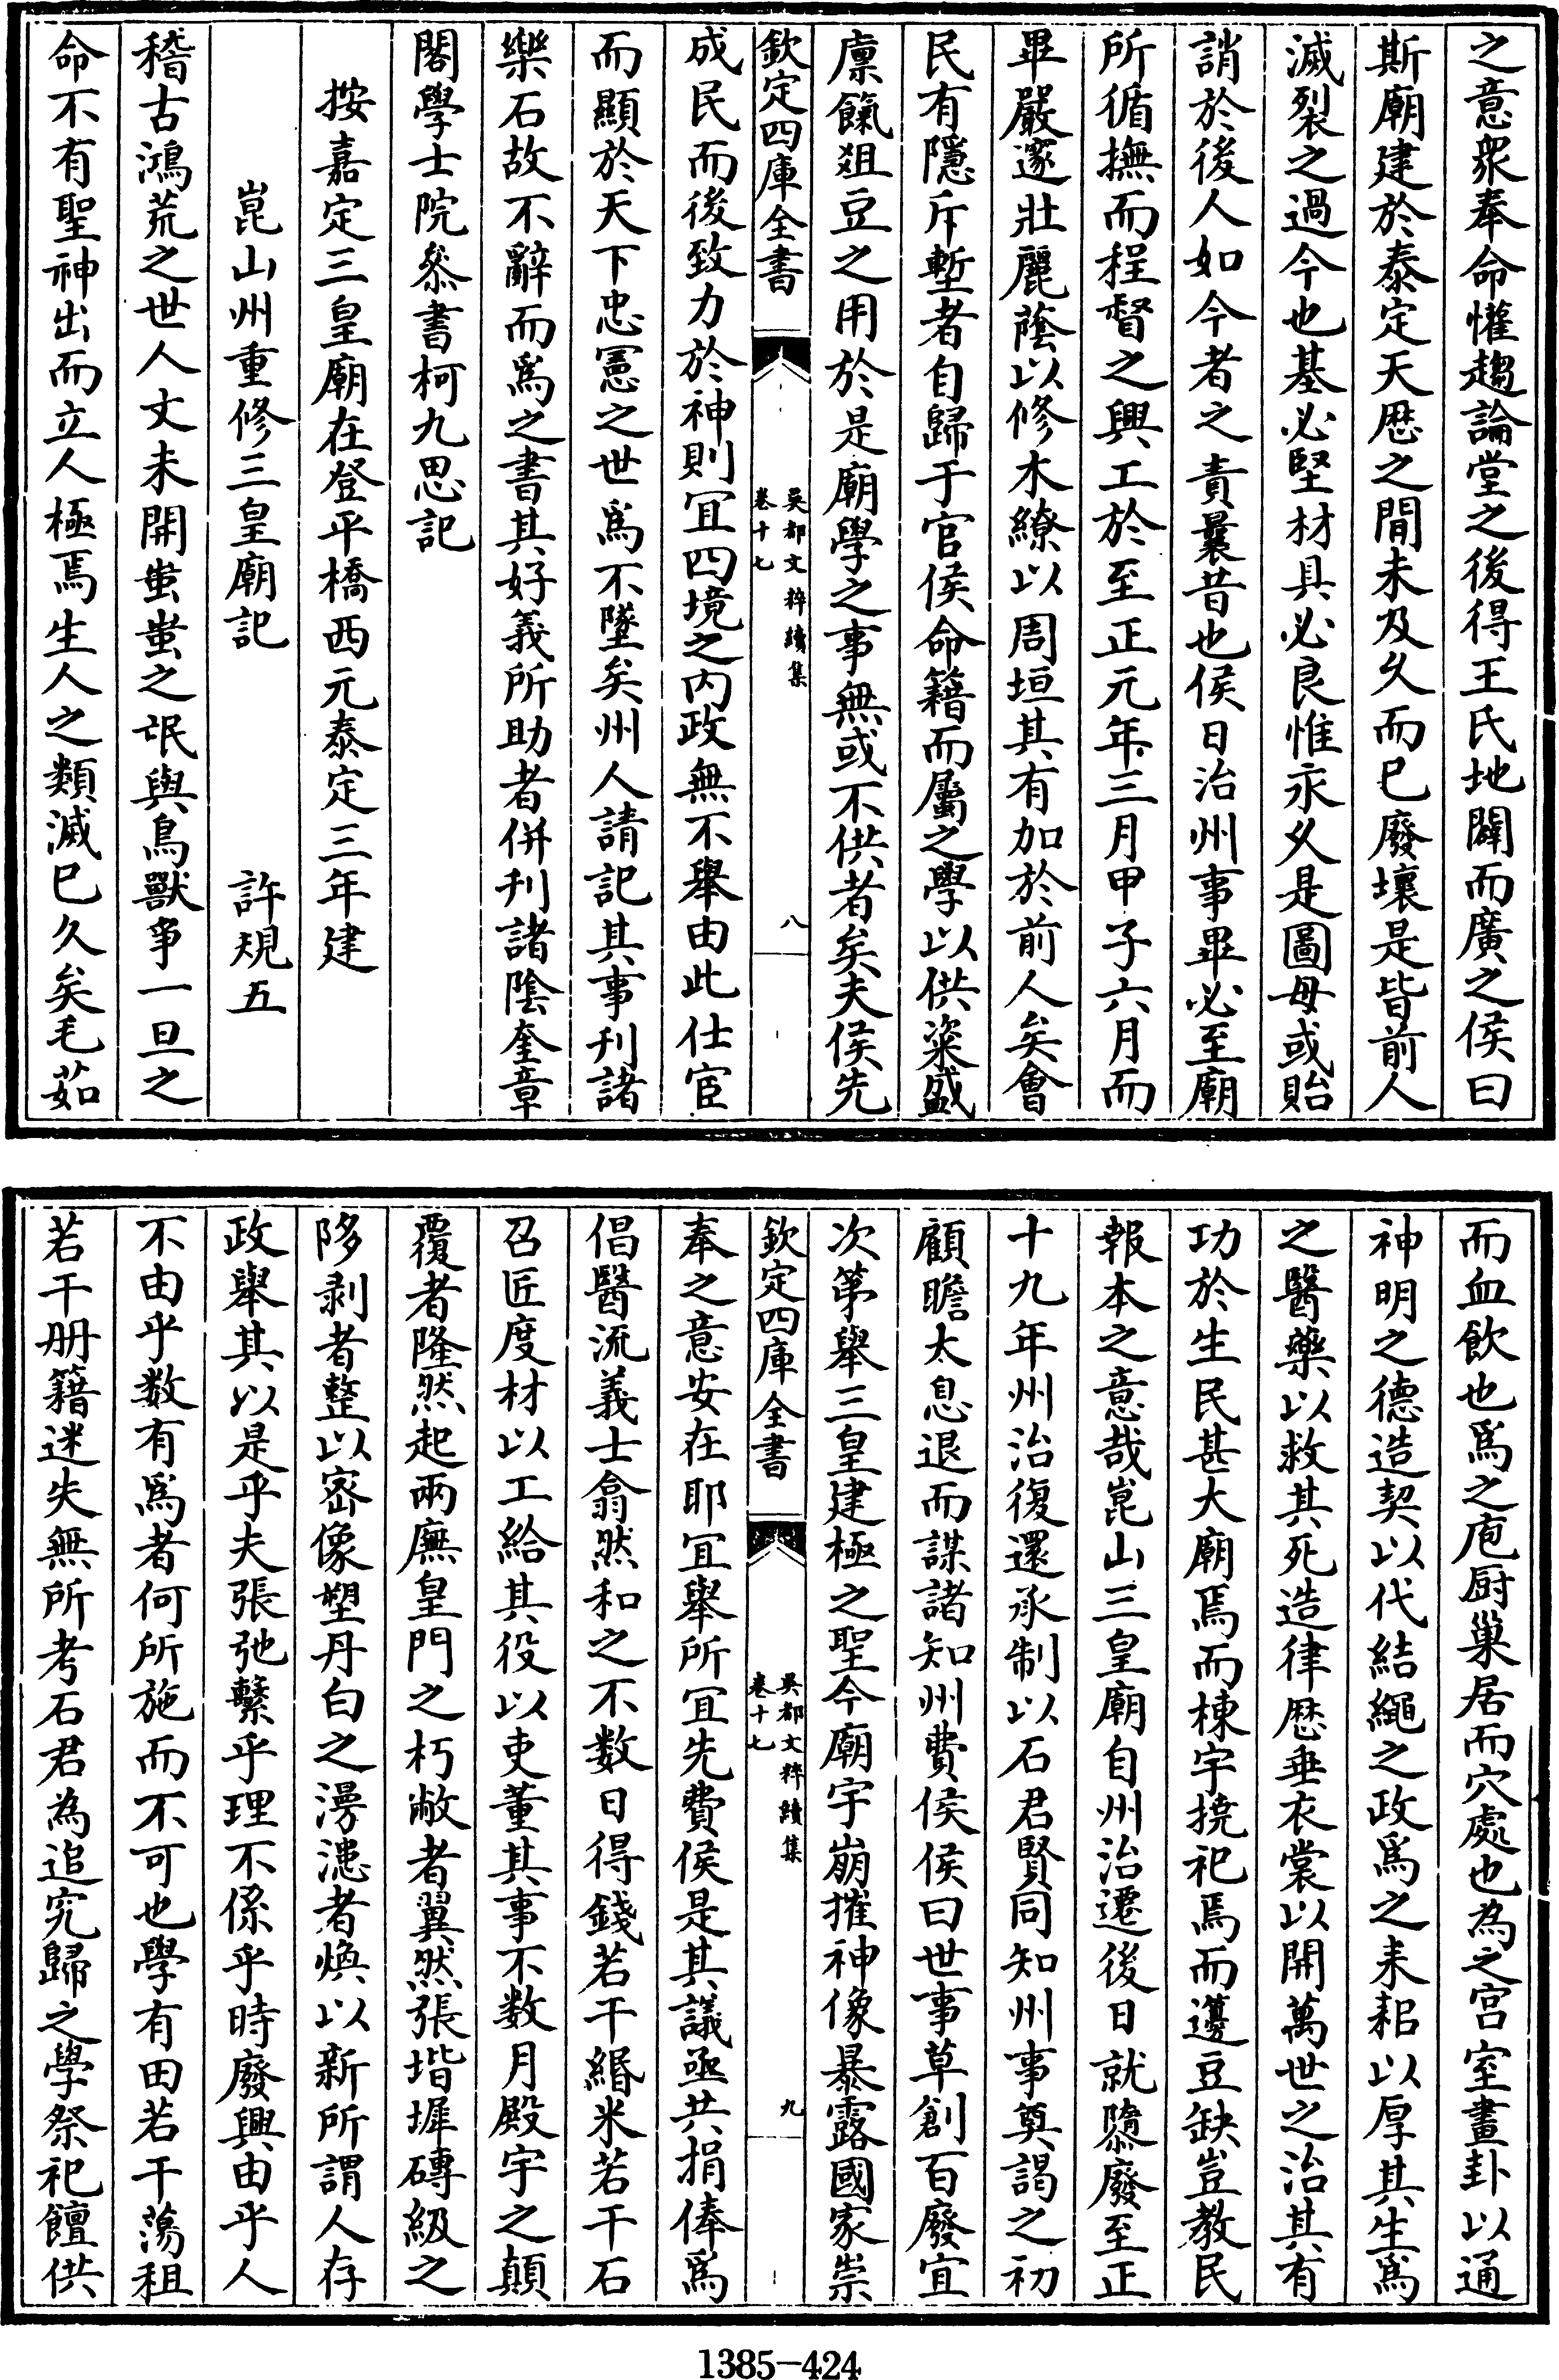 之意衆奉命懽趨論堂之後得王氏地闢而廣之侯曰
斯廟建於泰定天厯之間未及乆而已廢壞是皆前人
滅裂之過今也基必堅材具必良惟永乆是圖毋或貽
誚於後人如今者之責曩昔也侯日治州事畢必至廟
所循撫而程督之興工於至正元年三月甲子六月而
畢嚴邃壯麗蔭以修木繚以周垣其有加於前人矣會
民有隱斥塹者自歸于官侯命籍而屬之學以供粢盛
廪餼爼豆之用於是廟學之事無或不供者矣夫侯先
欽定四庫全書
吳都文粹續集
卷十七
八
成民而後致力於神則冝四境之内政無不舉由此仕宦
而顯於天下忠憲之世爲不墜矣州人請記其事刋諸
樂石故不辭而爲之書其好義所助者併刋諸隂奎章
閣學士院叅書柯九思記
按嘉定三皇廟在登平橋西元泰定三年建
崑山州重修三皇廟記
許規五
稽古鴻荒之世人文未開蚩蚩之氓與鳥獸爭一旦之
命不有聖神出而立人極焉生人之類滅已久矣毛茹
而血飲也爲之庖厨巢居而穴處也為之宫室畫卦以通
神明之德造契以代結繩之政爲之耒耜以厚其生爲
之醫藥以救其死造律厯垂衣裳以開萬世之治其有
功於生民甚大廟焉而棟宇撓祀焉而籩豆缺豈教民
報本之意哉崑山三皇廟自州治遷後日就隳廢至正
十九年州治復還承制以石君賢同知州事奠謁之初
顧瞻太息退而謀諸知州費侯侯曰世事草創百廢宜
次第舉三皇建極之聖今廟宇崩摧神像暴露國家崇
欽定四庫全書
吳都文粹續集
卷十七
九
奉之意安在耶冝舉所冝先費侯是其議亟共捐俸爲
倡醫流義士翕然和之不数日得錢若干緡米若干石
召匠度材以工給其役以吏董其事不数月殿宇之顛
覆者隆然起兩廡皇門之朽敝者翼然張堦墀磚級之
陊剥者整以宻像塑丹白之漫漶者煥以新所謂人存
政舉其以是乎夫張弛繫乎理不係乎時廢興由乎人
不由乎数有爲者何所施而不可也學有田若干蕩租
若干册籍迷失無所考石君為追究歸之學祭祀饘供
1385-424